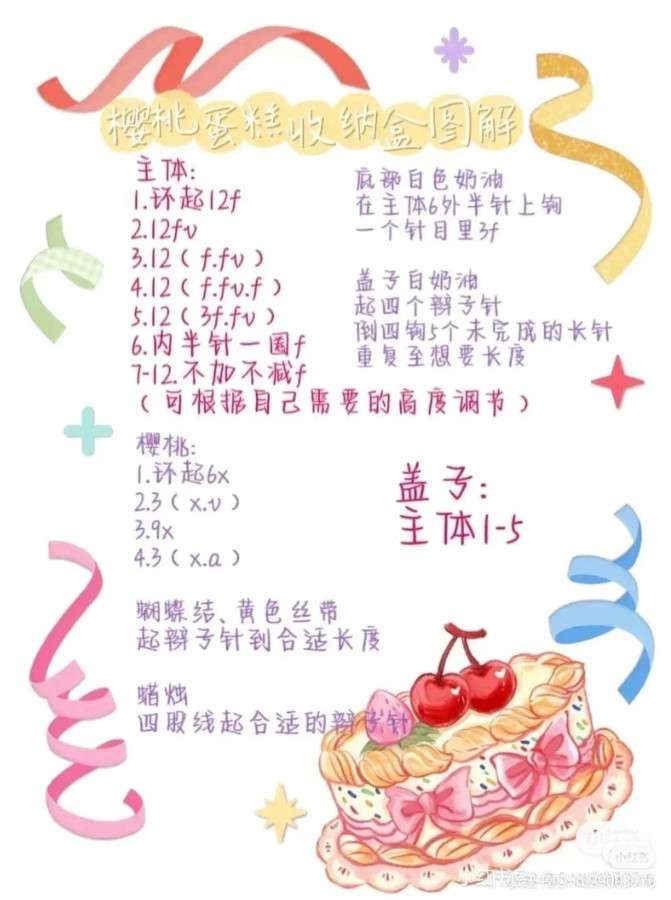 樱桃蛋糕收纳盒图解
主体:
1.环起12f
2.12fv
3.12（f.fv）
4.12（f.fv.f）
5.12（3f.fv）
6.内半针一圈f
7-12.不加不减f
（可根据自己需要的高度调节）
底部白色奶油
在主体6外半针上钩
一个针目里3f
盖子白奶油
起四个辫子针
倒四钩5个未完成的长针
重复至想要长度
樱桃:
1.环起6x
2.3（x.v）
3.9x
4.3（x.a）
盖子:
主体1-5
蝴蝶结、黄色丝带
起辫子针到合适长度
蜡烛
四股线起合适的辫子针
小红书